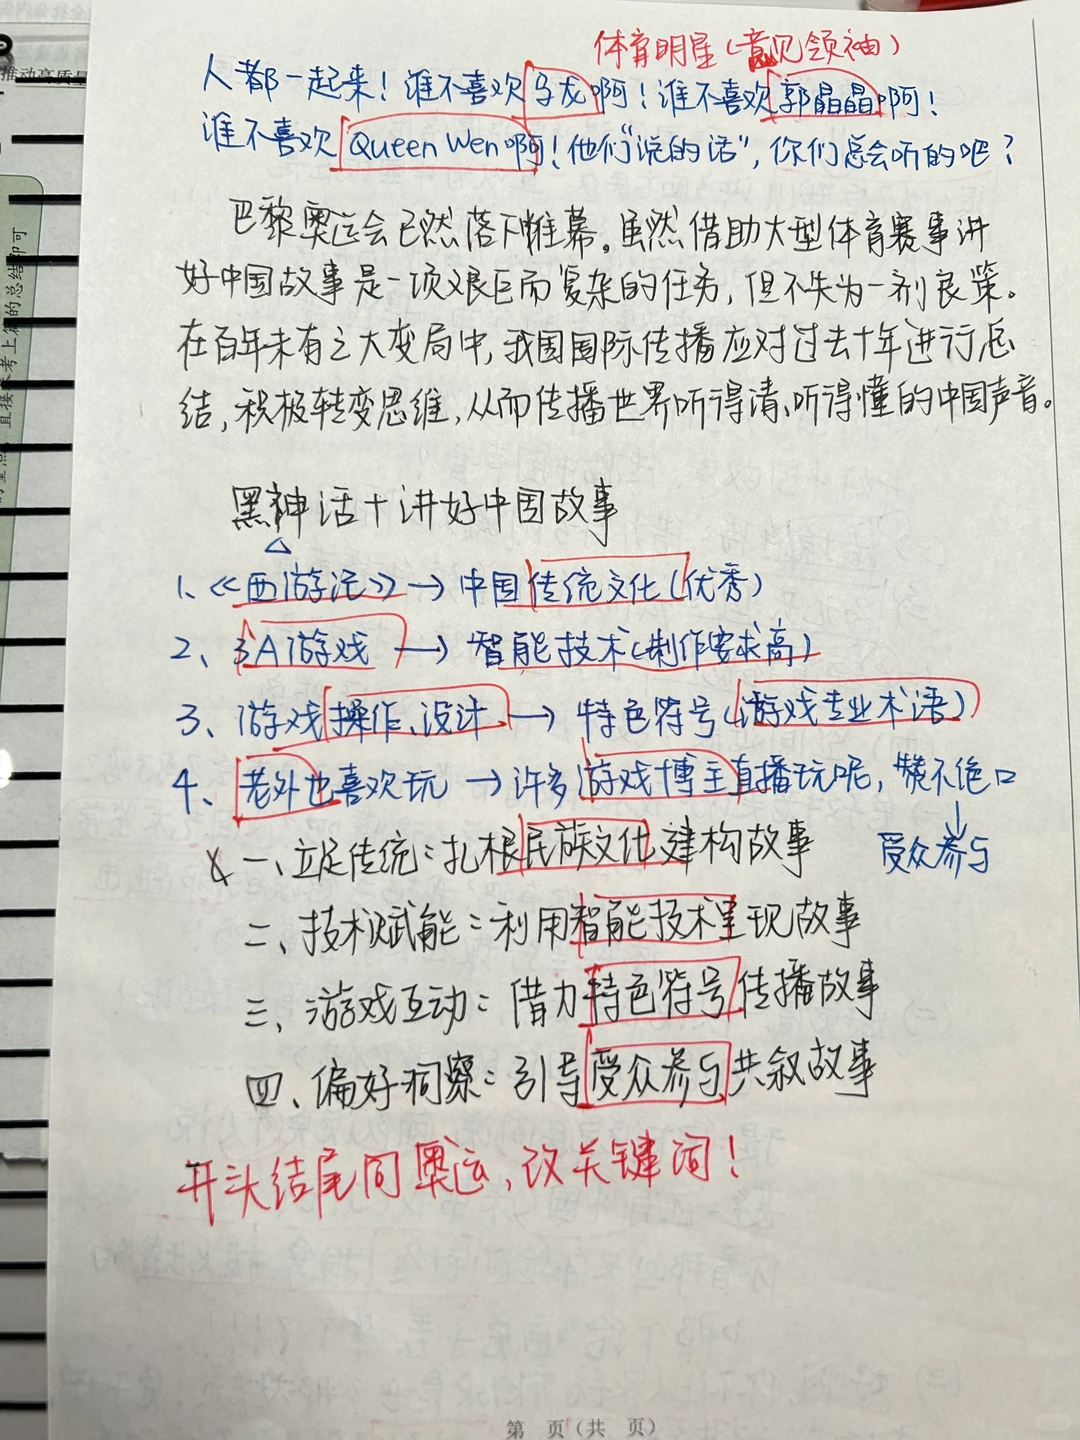 体育明星(意见领袖)
人都一起来！谁不喜欢马龙啊！谁不喜欢郭晶晶啊！
谁不喜欢Queen Wen啊！他们“说的话”，你们总会听的吧？
巴黎奥运会已然落下帷幕。虽然借助大型体育赛事讲
好中国故事是一项艰巨而复杂的任务，但不失为一剂良策。
在百年未有之大变局中，我国国际传播应对过去十年进行总
结，积极转变思维，从而传播世界听得清、听得懂的中国声音。
黑神话+讲好中国故事
1、《西游记》→中国传统文化(优秀)
2、3A游戏→智能技术(制作要求高)
3、游戏操作、设计→特色符号(游戏专业术语)
4、老外也喜欢玩→许多游戏博主直播玩呢，赞不绝口
受众参与
一、立足传统：扎根民族文化建构故事
二、技术赋能：利用智能技术呈现故事
三、游戏互动：借力特色符号传播故事
四、偏好洞察：引导受众参与共叙故事
开头结尾同奥运，改关键词！
第 页(共 页)